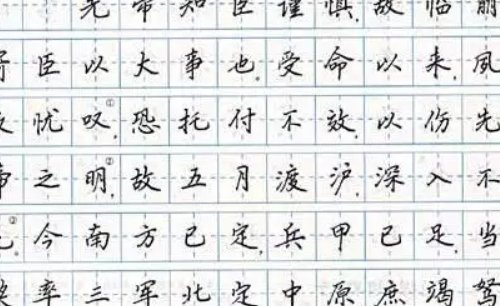 先帝知臣谨慎,故临崩
臣以大事也。受命以来,夙
忧叹①,恐托付不效,以伤先
帝之明②,故五月渡泸,深入不
②。今南方已定,兵甲已足,当
率三军北定中原庶竭驽